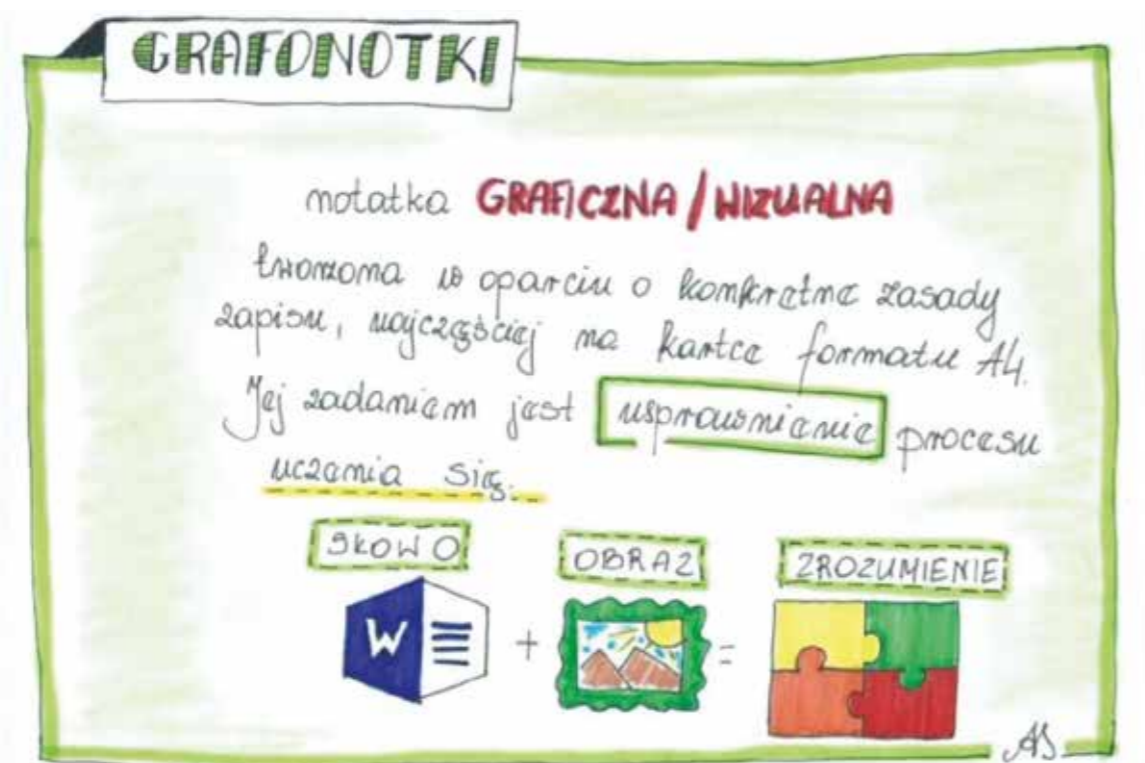 GRAFONOTKI
notatka GRAFICZNA/WIZUALNA
tworzona w oparciu o konkretne zasady
zapisu, najczęściej na kartce formatu A4.
Jej zadaniem jest usprawnienie procesu
uczenia się.
SŁOWO OBRAZ ZROZUMIENIE
W + =
AS